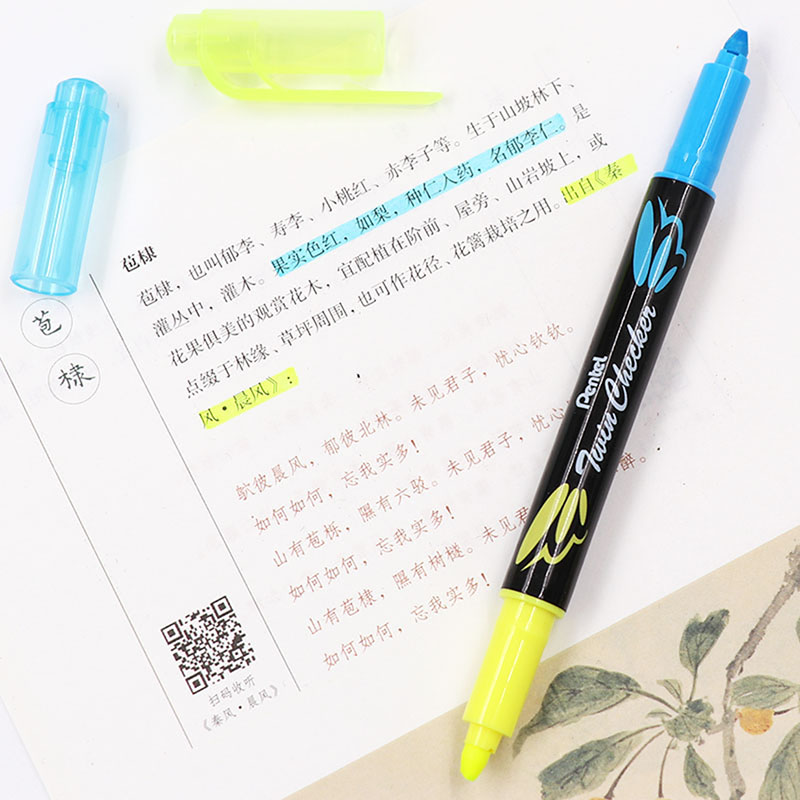 苞棣
苞棣，也叫郁李、寿李、小桃红、赤李子等。生于山坡林下、
灌丛中，灌木。果实色红，如梨，种仁入药，名郁李仁。是
花果俱美的观赏花木，宜配植在阶前、屋旁、山岩坡上，或
点缀于林缘、草坪周围，也可作花径、花篱栽培之用。出自《秦
风·晨风》：
苞
棣
鴥彼晨风，郁彼北林。未见君子，忧心钦钦。
如何如何，忘我实多！
山有苞栎，隰有六驳。未见君子，忧心
如何如何，忘我实多！
山有苞棣，隰有树檖。未见君 醉。
如何如何，忘我实多！
扫码收听
《秦风·晨风》
Pentel
Twin Checker